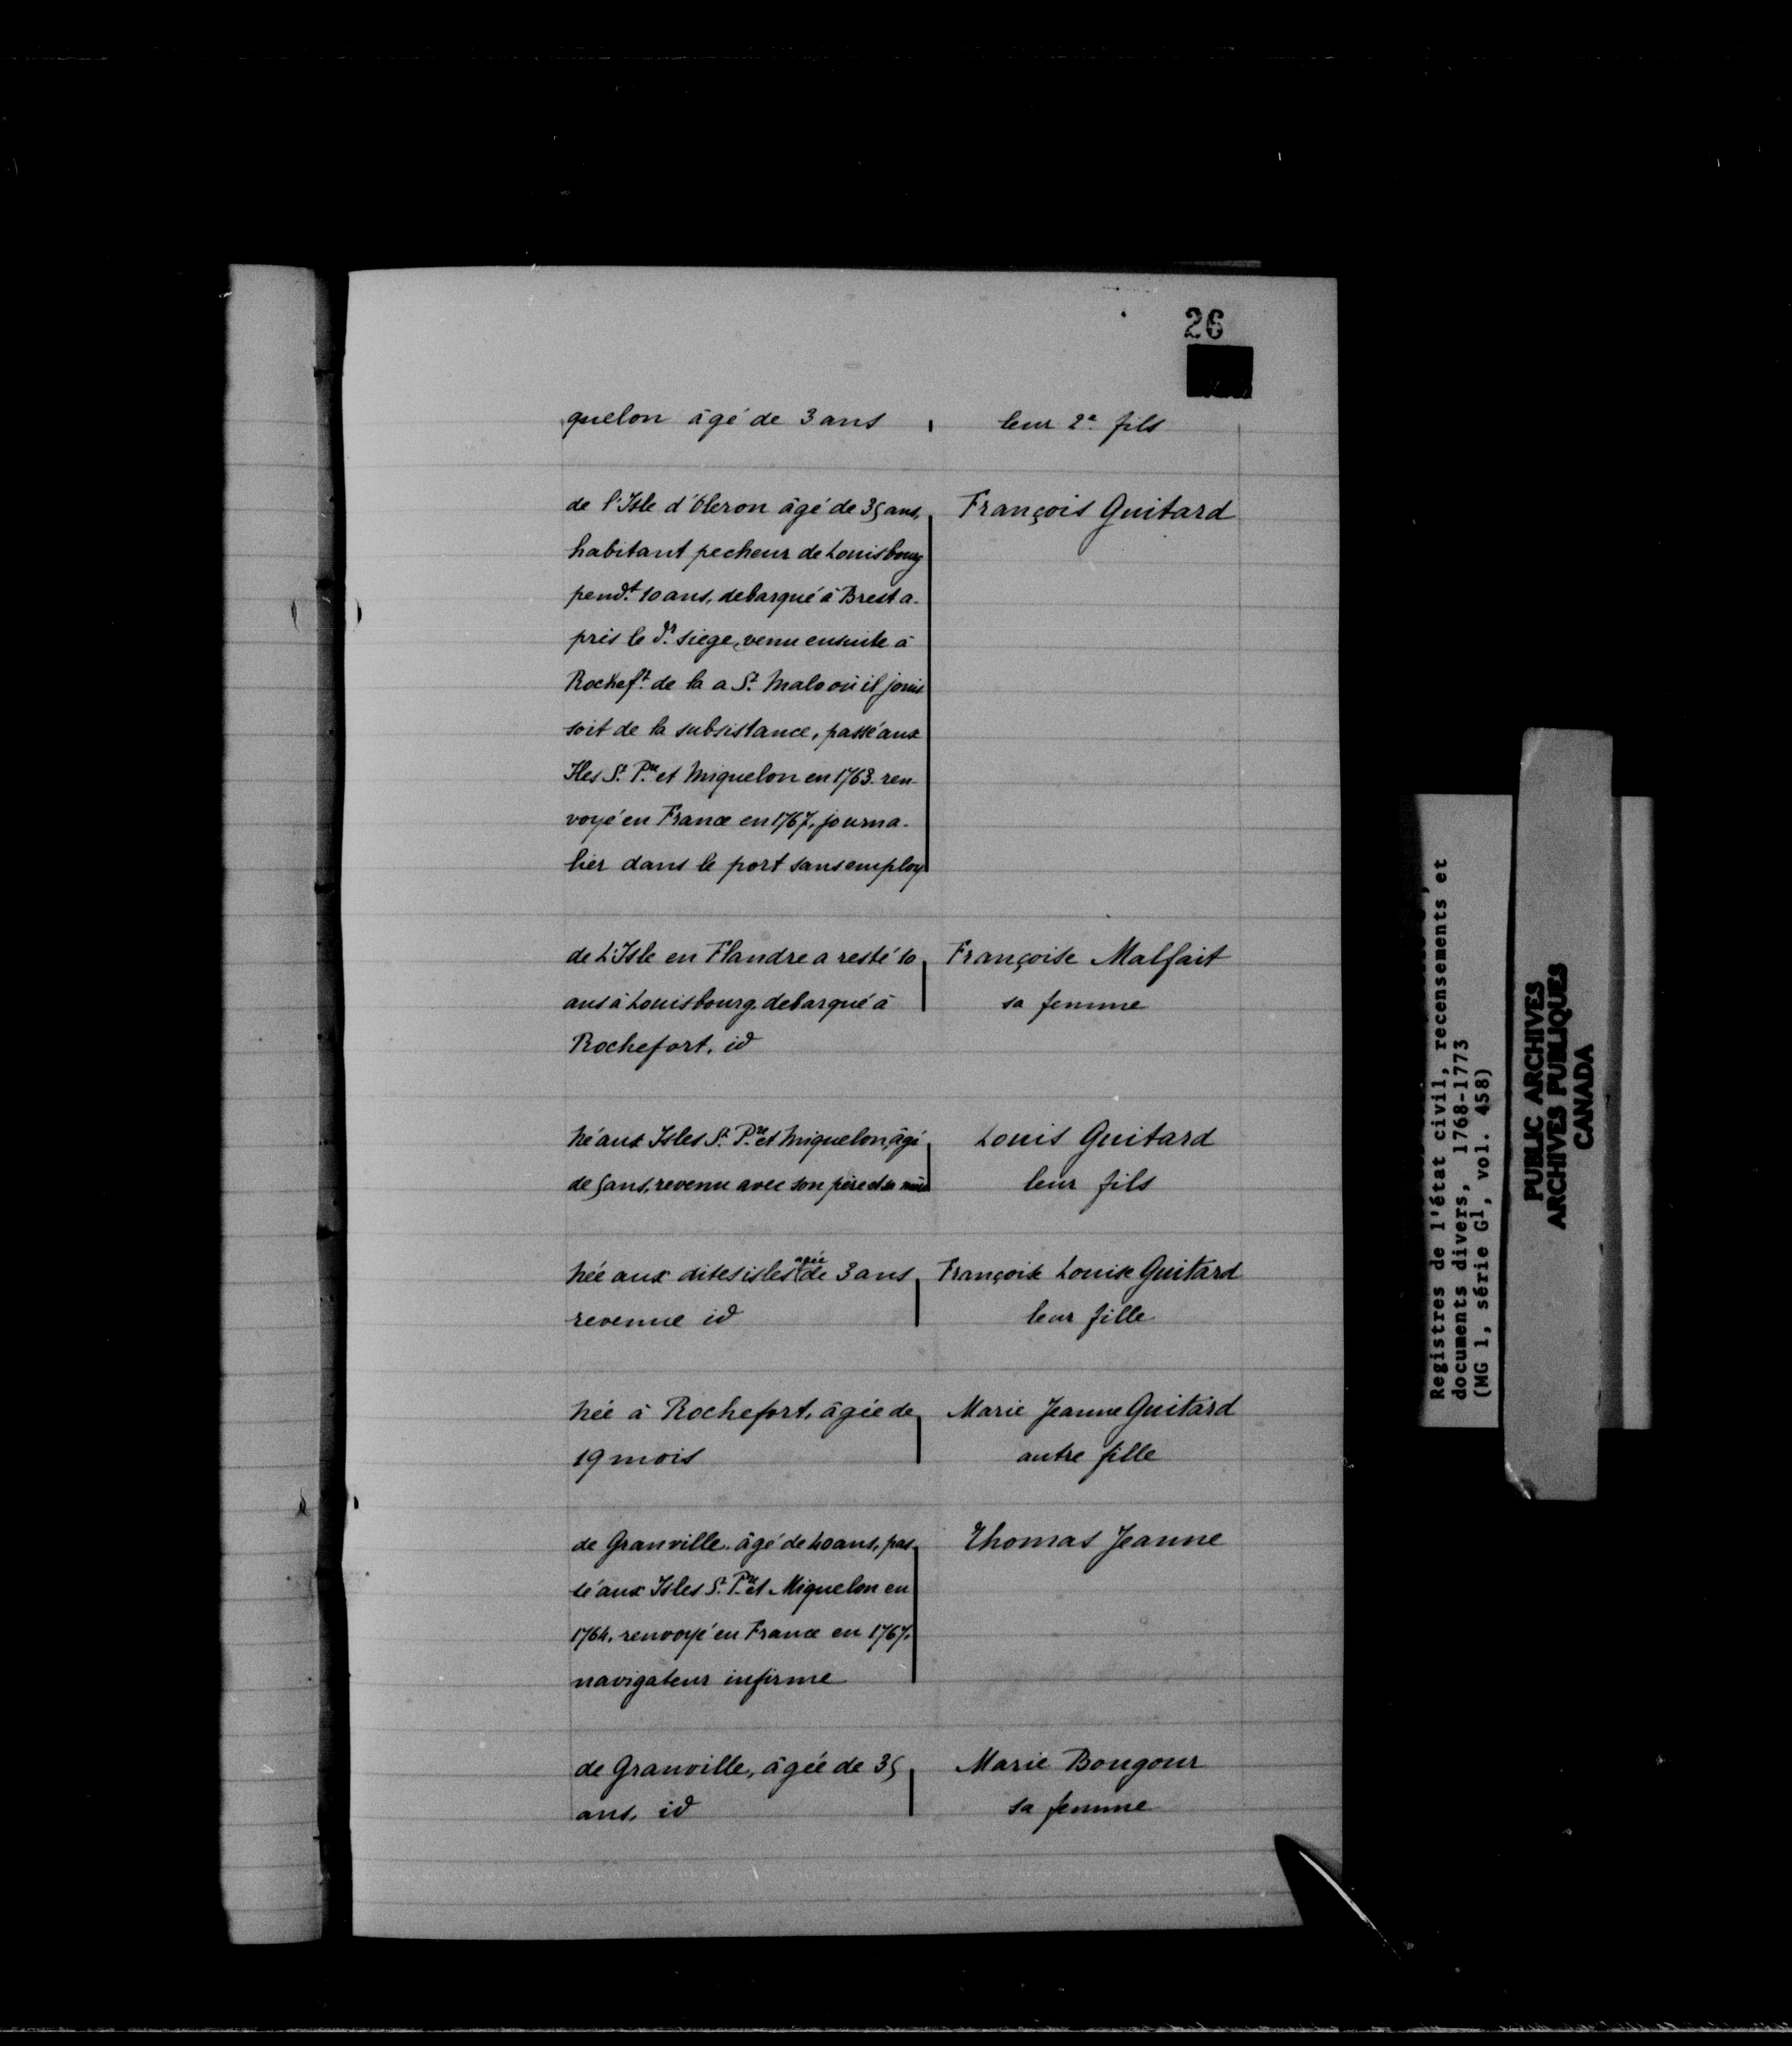 26
quelon âgé de 3 ans leur 2e fils
de l'Isle d'Oleron âgé de 35 ans, François Guitard
habitant pecheur de Louisbourg
pendt 10 ans, debarqué à Brest a-
près le dr siege, venu ensuite à
Rocheft de la a St Malo où il jouis
soit de la subsistance, passé aux
Iles St Pre et Miquelon en 1763. ren-
voyé en France en 1767, journa-
lier dans le port sans employ
de L'Isle en Flandre a resté 10 Françoise Malfait
ans à Louisbourg, debarqué à sa femme
Rochefort, id
Né aux Isles St Pre et Miquelon, âgé Louis Guitard
de 5 ans, revenu avec son père et sa mère leur fils
Née aux dites isles agée de 3 ans Françoise Louise Guitard
revenue id leur fille
Née à Rochefort, âgée de Marie Jeanne Guitard
19 mois autre fille
de Granville, âgé de 40 ans, pas- Thomas Jeanne
sé aux Isles St Pre et Miquelon en
1764, renvoyé en France en 1767,
navigateur infirme
de Granville, âgée de 35 Marie Bougour
ans, id sa femme
Registres de l'état civil, recensements et
documents divers, 1768-1773
(MG 1, série G1, vol. 458)
PUBLIC ARCHIVES
ARCHIVES PUBLIQUES
CANADA